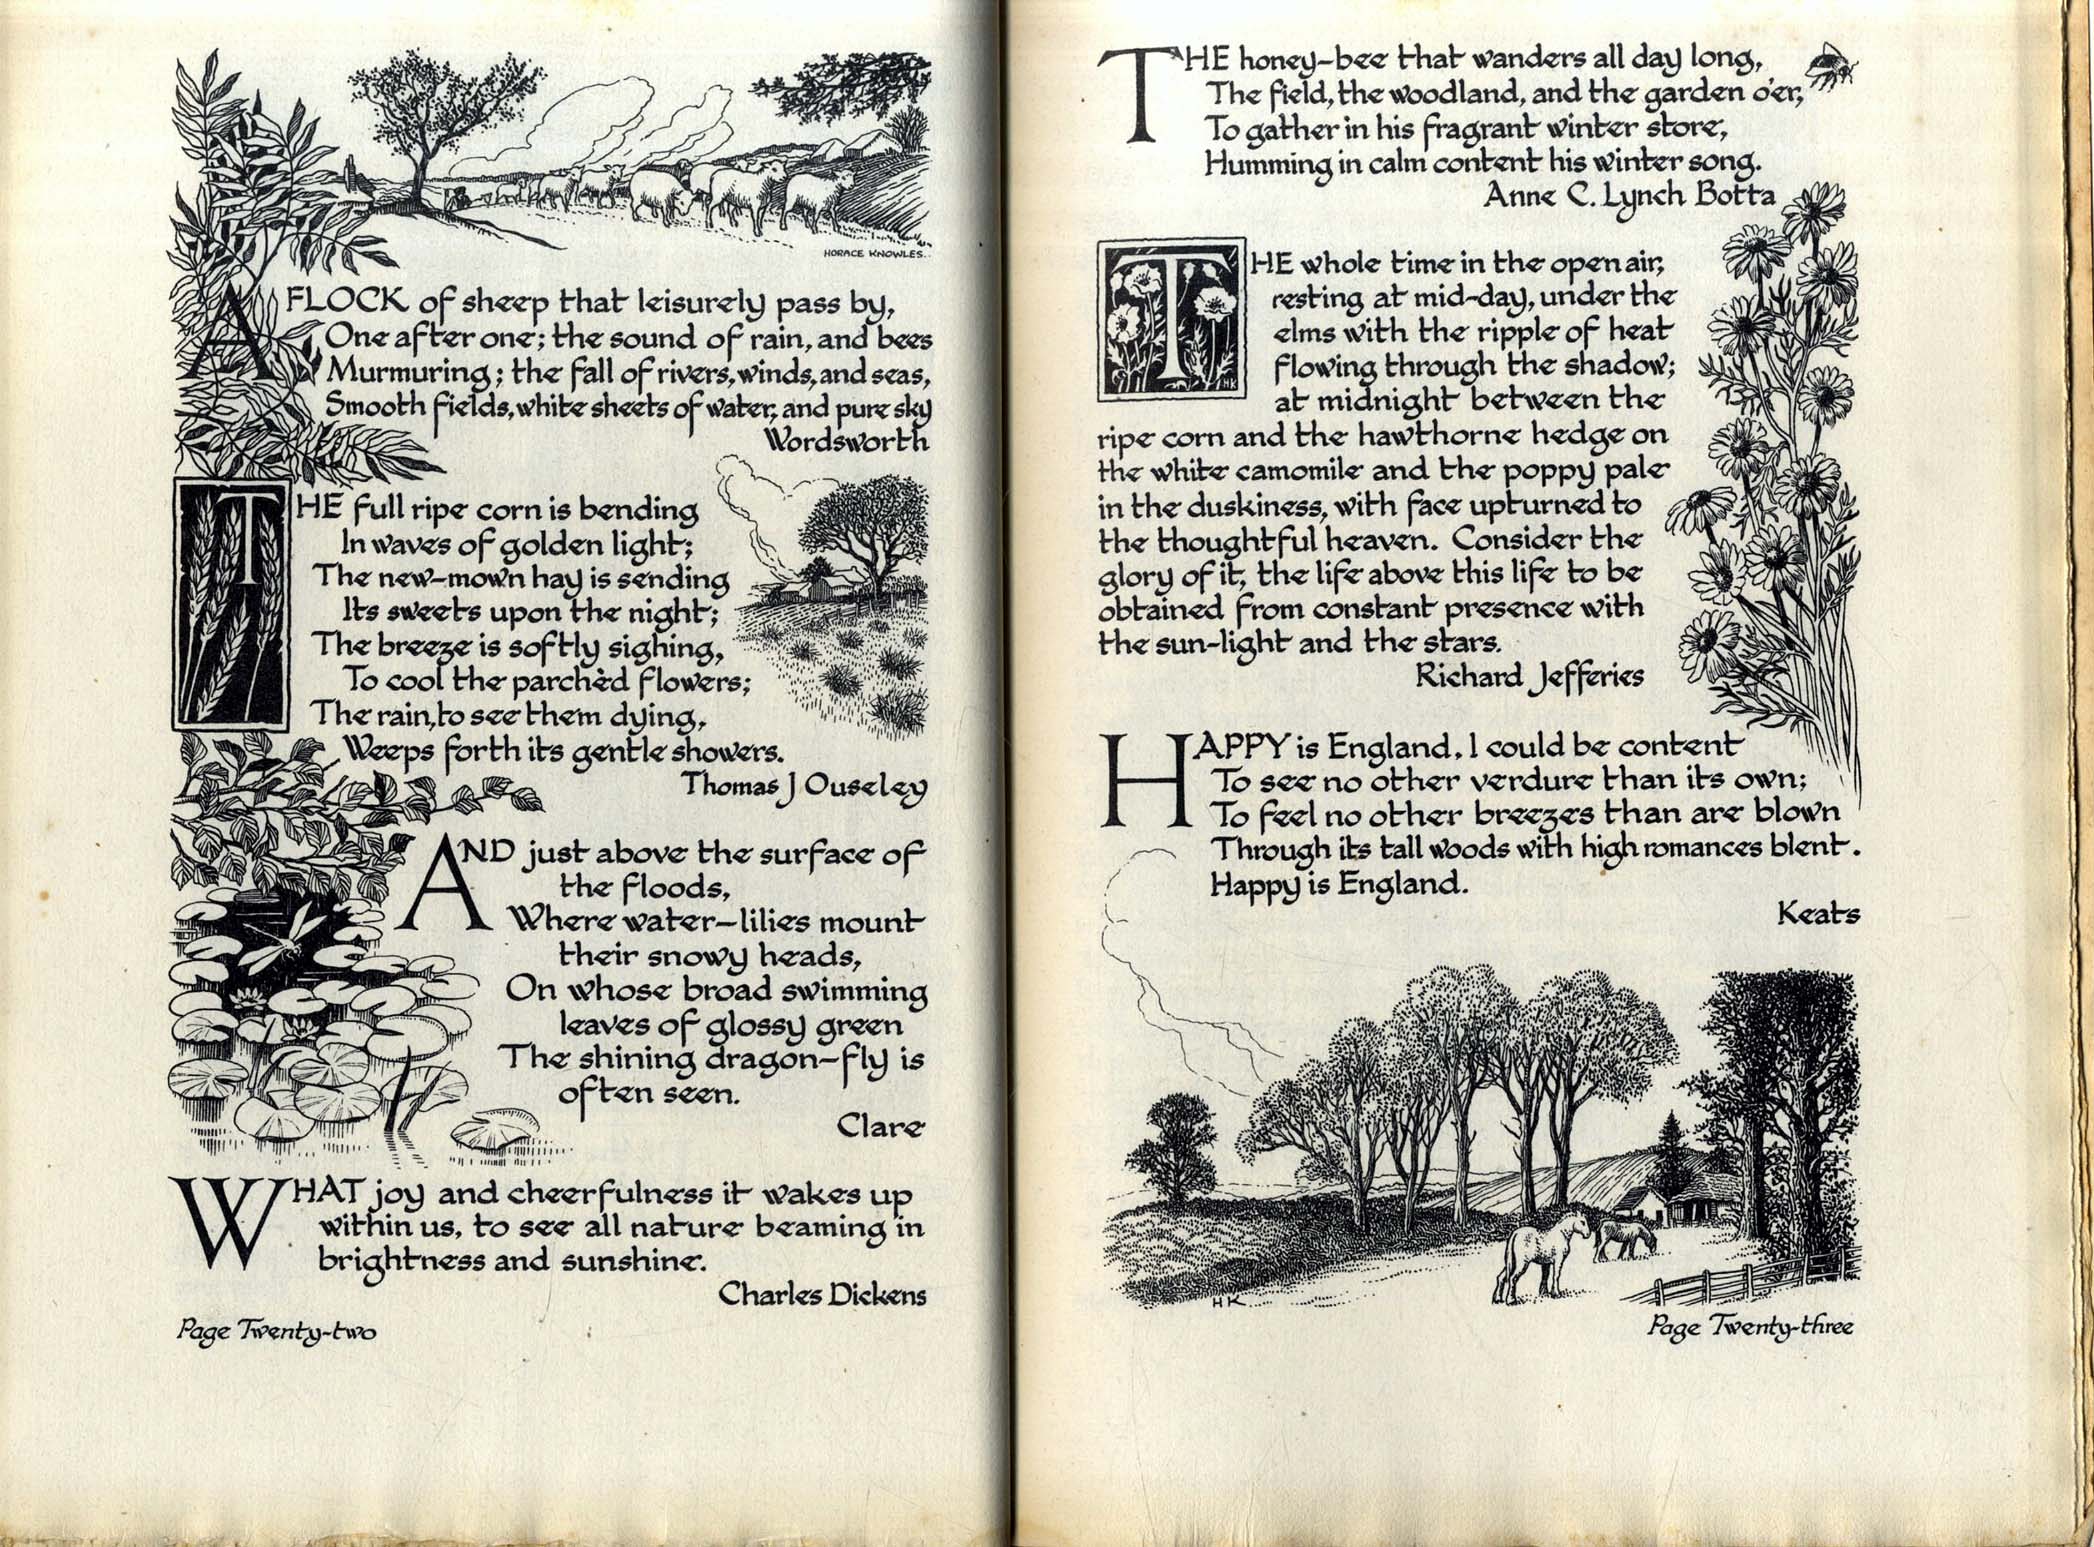 HORACE KNOWLES..
A FLOCK of sheep that leisurely pass by,
One after one; the sound of rain, and bees
Murmuring; the fall of rivers, winds, and seas,
Smooth fields, white sheets of water, and pure sky
Wordsworth
THE full ripe corn is bending
In waves of golden light;
The new-mown hay is sending
Its sweets upon the night;
The breeze is softly sighing,
To cool the parchèd flowers;
The rain, to see them dying,
Weeps forth its gentle showers.
Thomas J Ouseley
AND just above the surface of
the floods,
Where water-lilies mount
their snowy heads,
On whose broad swimming
leaves of glossy green
The shining dragon-fly is
often seen.
Clare
WHAT joy and cheerfulness it wakes up
within us, to see all nature beaming in
brightness and sunshine.
Charles Dickens
Page Twenty-two
THE honey-bee that wanders all day long,
The field, the woodland, and the garden o'er,
To gather in his fragrant winter store,
Humming in calm content his winter song.
Anne C. Lynch Botta
THE whole time in the open air,
resting at mid-day, under the
elms with the ripple of heat
flowing through the shadow;
at midnight between the
HK
ripe corn and the hawthorne hedge on
the white camomile and the poppy pale
in the duskiness, with face upturned to
the thoughtful heaven. Consider the
glory of it, the life above this life to be
obtained from constant presence with
the sun-light and the stars.
Richard Jefferies
HAPPY is England, I could be content
To see no other verdure than its own;
To feel no other breezes than are blown
Through its tall woods with high romances blent.
Happy is England.
Keats
HK
Page Twenty-three